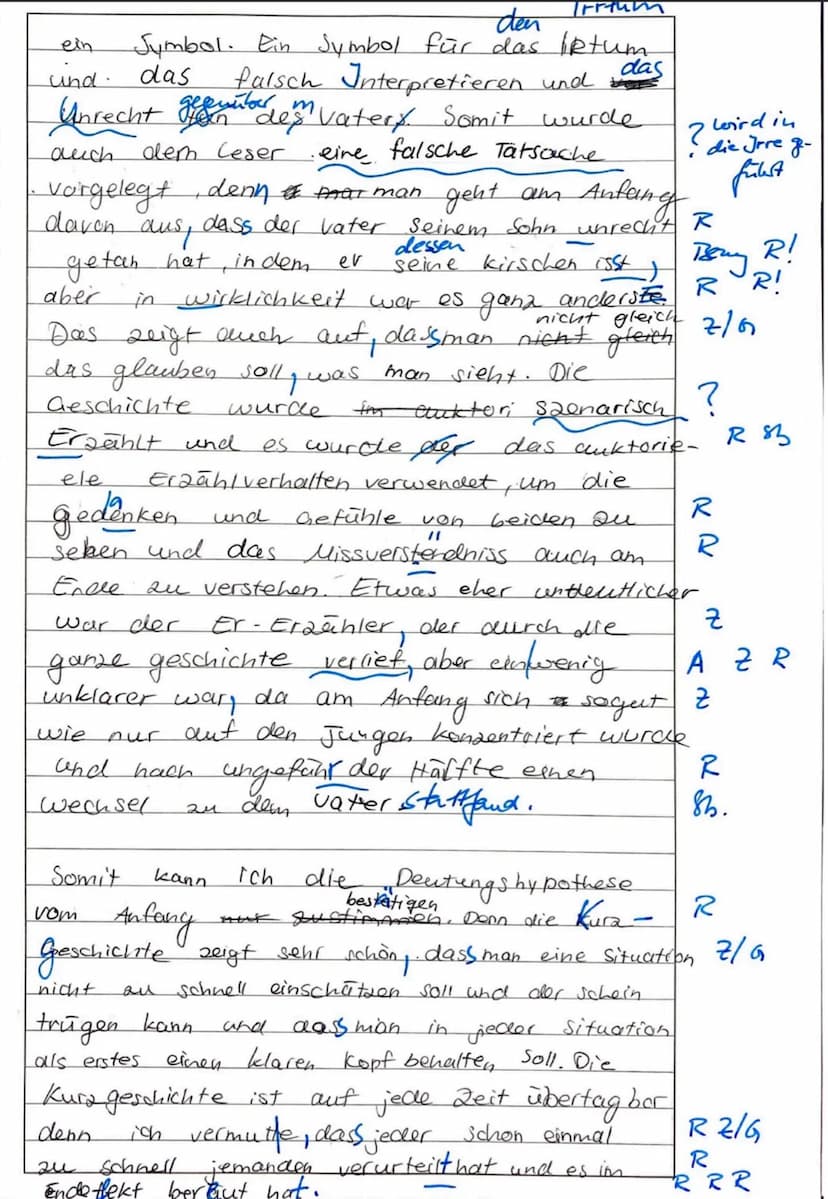 den Irrtum
ein Symbol. Ein Symbol für das Irtum
und das falsch Interpretieren und das
Unrecht gegenüber dem Vater. Somit wurde
? wird in die Irre geführt
auch dem Leser eine falsche Tatsache
vorgelegt, denn man geht am Anfang
davon aus, dass der Vater seinem Sohn unrecht R
dessen
getan hat, indem er seine kirschen isst, Bzug R!
aber in wirklichkeit war es ganz anders. R R!
nicht gleich
Das zeigt auch auf, dass man nicht gleich Z/G
das glauben soll, was man sieht. Die
Geschichte wurde im auktori szenarisch ?
Erzählt und es wurde der das auktorie- R Sb
ele Erzählverhalten verwendet, um die
gedanken und Gefühle von beiden zu R
sehen und das Missverständniss auch am R
Ende zu verstehen. Etwas eher undeutlicher
war der Er-Erzähler, der durch die Z
ganze geschichte verlief, aber ein wenig A Z R
unklarer war, da am Anfang sich sogut Z
wie nur auf den Jungen konzentriert wurde
und nach ungefähr der Hälfte einen R
wechsel zu dem Vater stattfand. Sb.
Somit kann ich die Deutungshypothese
bestätigen
vom Anfang nur zustimmen. Denn die Kurz- R
geschichte zeigt sehr schön, dass man eine Situation Z/G
nicht zu schnell einschätzen soll und der schein
trügen kann und dass man in jeder Situation
als erstes einen klaren Kopf behalten soll. Die
Kurzgeschichte ist auf jede Zeit übertagbar
denn ich vermute, dass jeder schon einmal R Z/G
zu schnell jemanden verurteilt hat und es im R
Endeffekt bereut hat. R R R